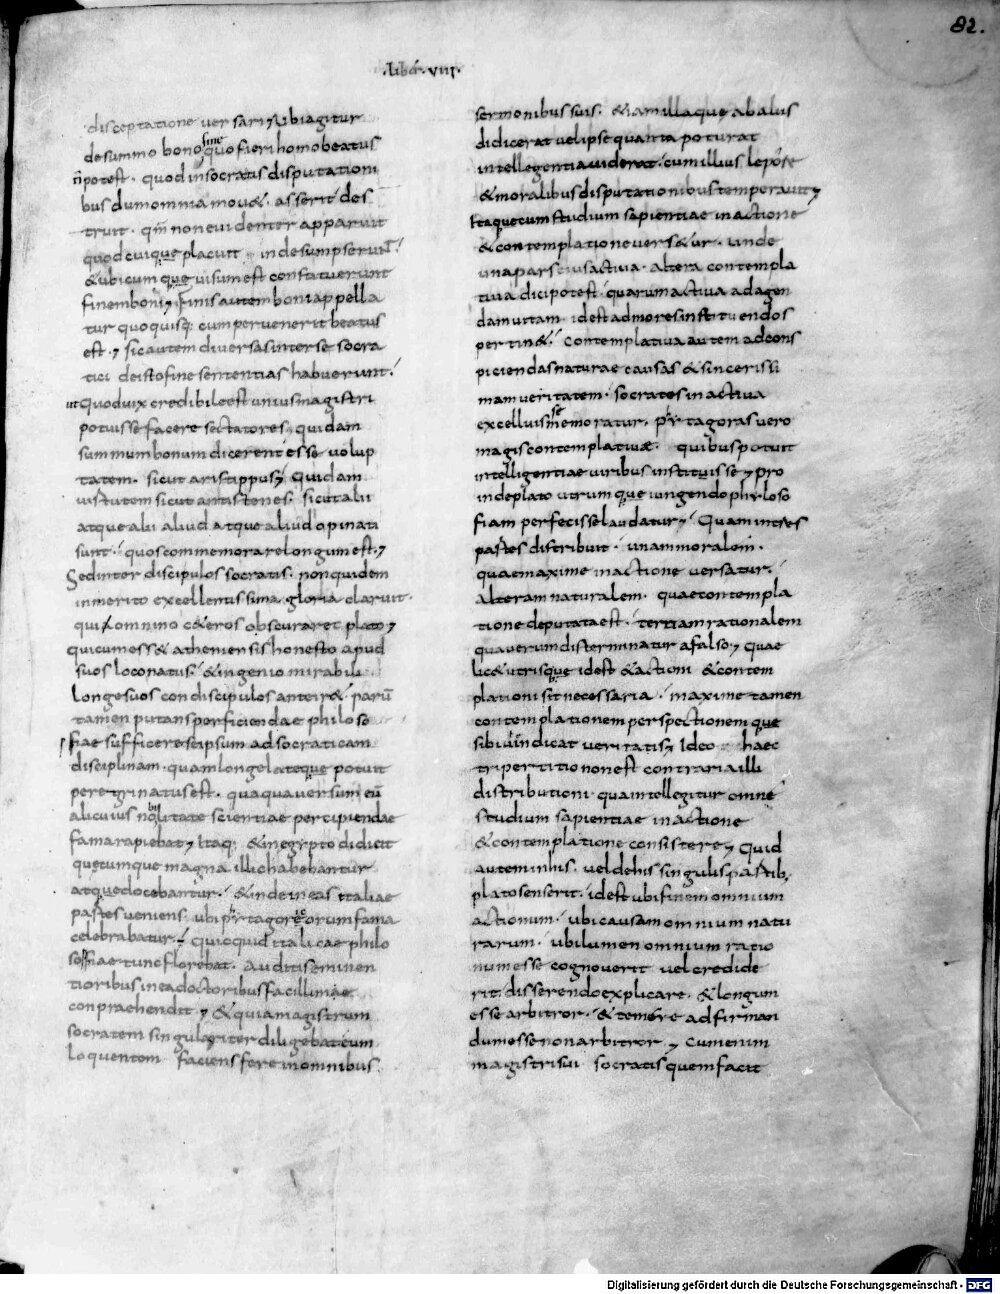 82.
.liber. VIII.
disceptatione versari & ubi agitur
de summo bono sine quo fieri homo beatus
n̄ potest. quod in socratis disputationi
bus dum omnia mouet. asserit des
truit. qm̄ non euidenter apparuit
quod cuique placuit inde sumpserunt.
& ubicumque uisum est constituerunt
finem boni; Finis autem boni appella
tur quo quisq; cum peruenerit beatus
est.; sic autem diuersas inter se socra
tici de isto fine sententias habuerunt.
ut Quod uix credibile est unius magistri
potuisse facere sectatores; quidam
summum bonum dicerent esse uolup
tatem. sicut aristippus; Quidam
uirtutem sicut antistenes. sicut alii
atque alii aliud atque aliud opinati
sunt. quos commemorare longum est.;
Sed inter discipulos socratis. non quidem
inmerito excellentissima gloria claruit.
qui omnino ceteros obscuraret plato;
qui cum esset atheniensis honesto apud
suos loco natus. & ingenio mirabili
longe suos condiscipulos anteiret parū
tamen putans perficiendae philoso
fiae sufficere se ipsum ad socraticam
disciplinam. quam longe lateque potuit
peregrinatus est. quaqua uersum eū
alicuius nobilitate scientiae percipiendae
fama rapiebat; Itaq; & in egypto didicit
quecumque magna illic habebantur
atque docebantur. & inde in eas italiae
partes ueniens. ubi pytagoreorum fama
celebrabatur. quicquid italicae philo
sofiae tunc florebat. auditis eminen
tioribus in ea doctoribus facillimae
conpraehendit; & quia magistrum
socratem singulariter diligebat eum
loquentem faciens fere in omnibus
sermonibus suis. & iam illa que ab aliis
didicerat uel ipse quanta poturat
intellegentia uiderat. cum illius lepore
& moralibus disputationibus temperauit;
Itaque cum studium sapientiae in actione
& contemplatione uersetur. unde
una pars eius actiua. altera contempla
tiua dici potest. quarum actiua ad agen
dam uitam. id est ad mores instituendos
pertinet. contemplatiua autem ad cons
piciendas naturae causas & sincerissi
mam ueritatem. socrates in actiua
excelluisse memoratur. pytagoras uero
magis contemplatiuae. quibus potuit
intelligentiae uiribus instituisse; pro
inde plato utrumque iungendo phyloso
fiam perfecisse laudatur; Quam in tres
partes distribuit. unam moralem.
quae maxime in actione uersatur.
alteram naturalem. quae contempla
tione deputata est. tertiam rationalem
qua uerum disterminatur a falso; quae
licet utrisque id est & actioni & contem
plationi sit necessaria. maxime tamen
contemplationem perspectionemque
sibi uindicat ueritatis; Ideo haec
tripertitio non est contraria illi
distributioni qua intellegitur omne
studium sapientiae in actione
& contemplatione consistere; Quid
autem in his. uel de his singulis partib;
plato senserit. id est ubi finem omnium
actionum. ubi causam omnium natu
rarum. ubi lumen omnium ratio
num esse cognouerit uel credide
rit. disserendo explicare. & longum
esse arbitror. & temere adfirman
dum esse non arbitror; Cum enim
magistri sui socratis quem facit
Digitalisierung gefördert durch die Deutsche Forschungsgemeinschaft - DFG